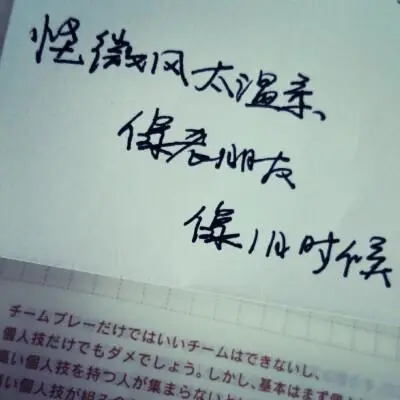 怪微风太温柔
像老朋友
像小时候
チームプレーだけではいいチームはできないし、
個人技だけでもダメでしょう。しかし、基本はまず個
高い個人技を持つ人が集まらないと
い個人技が